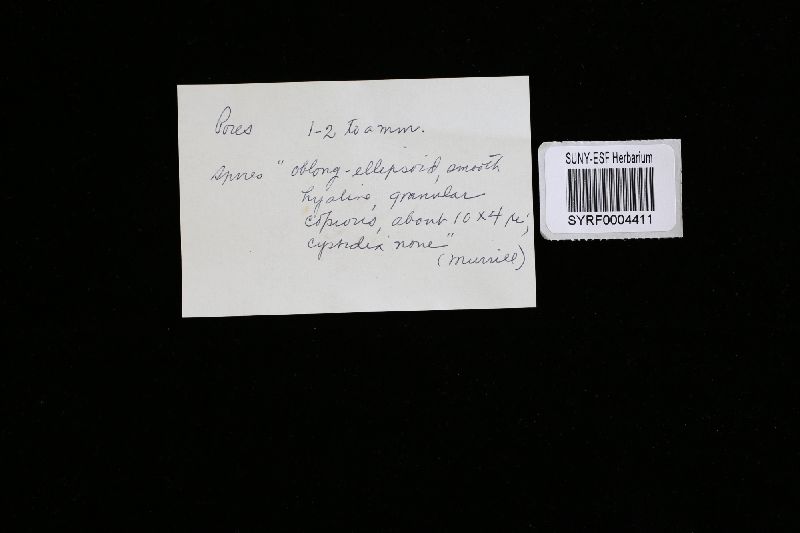 Pores 1-2 to a mm.
Spores "oblong-ellipsoid, smooth
hyaline, granular
copious, about 10 x 4 µ;
cystidia none"
(Murrill)
SUNY-ESF Herbarium
SYRF0004411